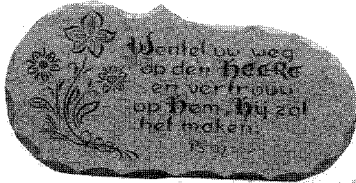 Wentel uw weg
op den HEERE
en vertrouw
op Hem, Hij zal
het maken.